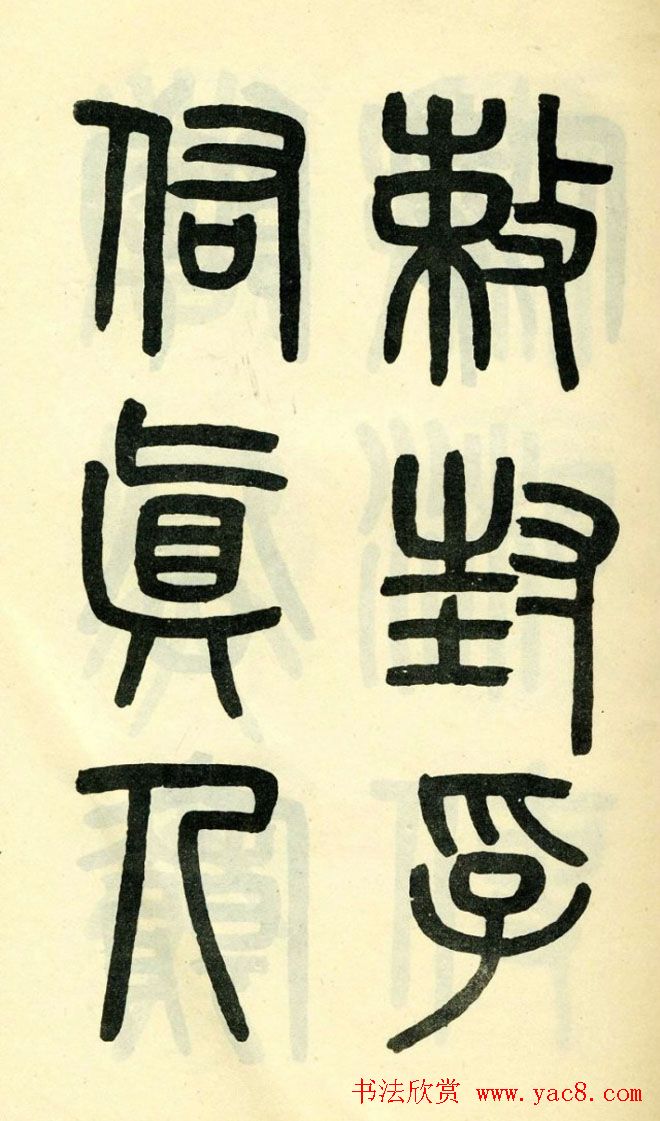 敕封孚
佑眞人
书法欣赏 www.yac8.com